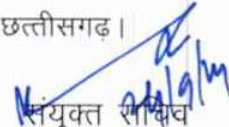 छत्तीसगढ़।
संयुक्त सचिव